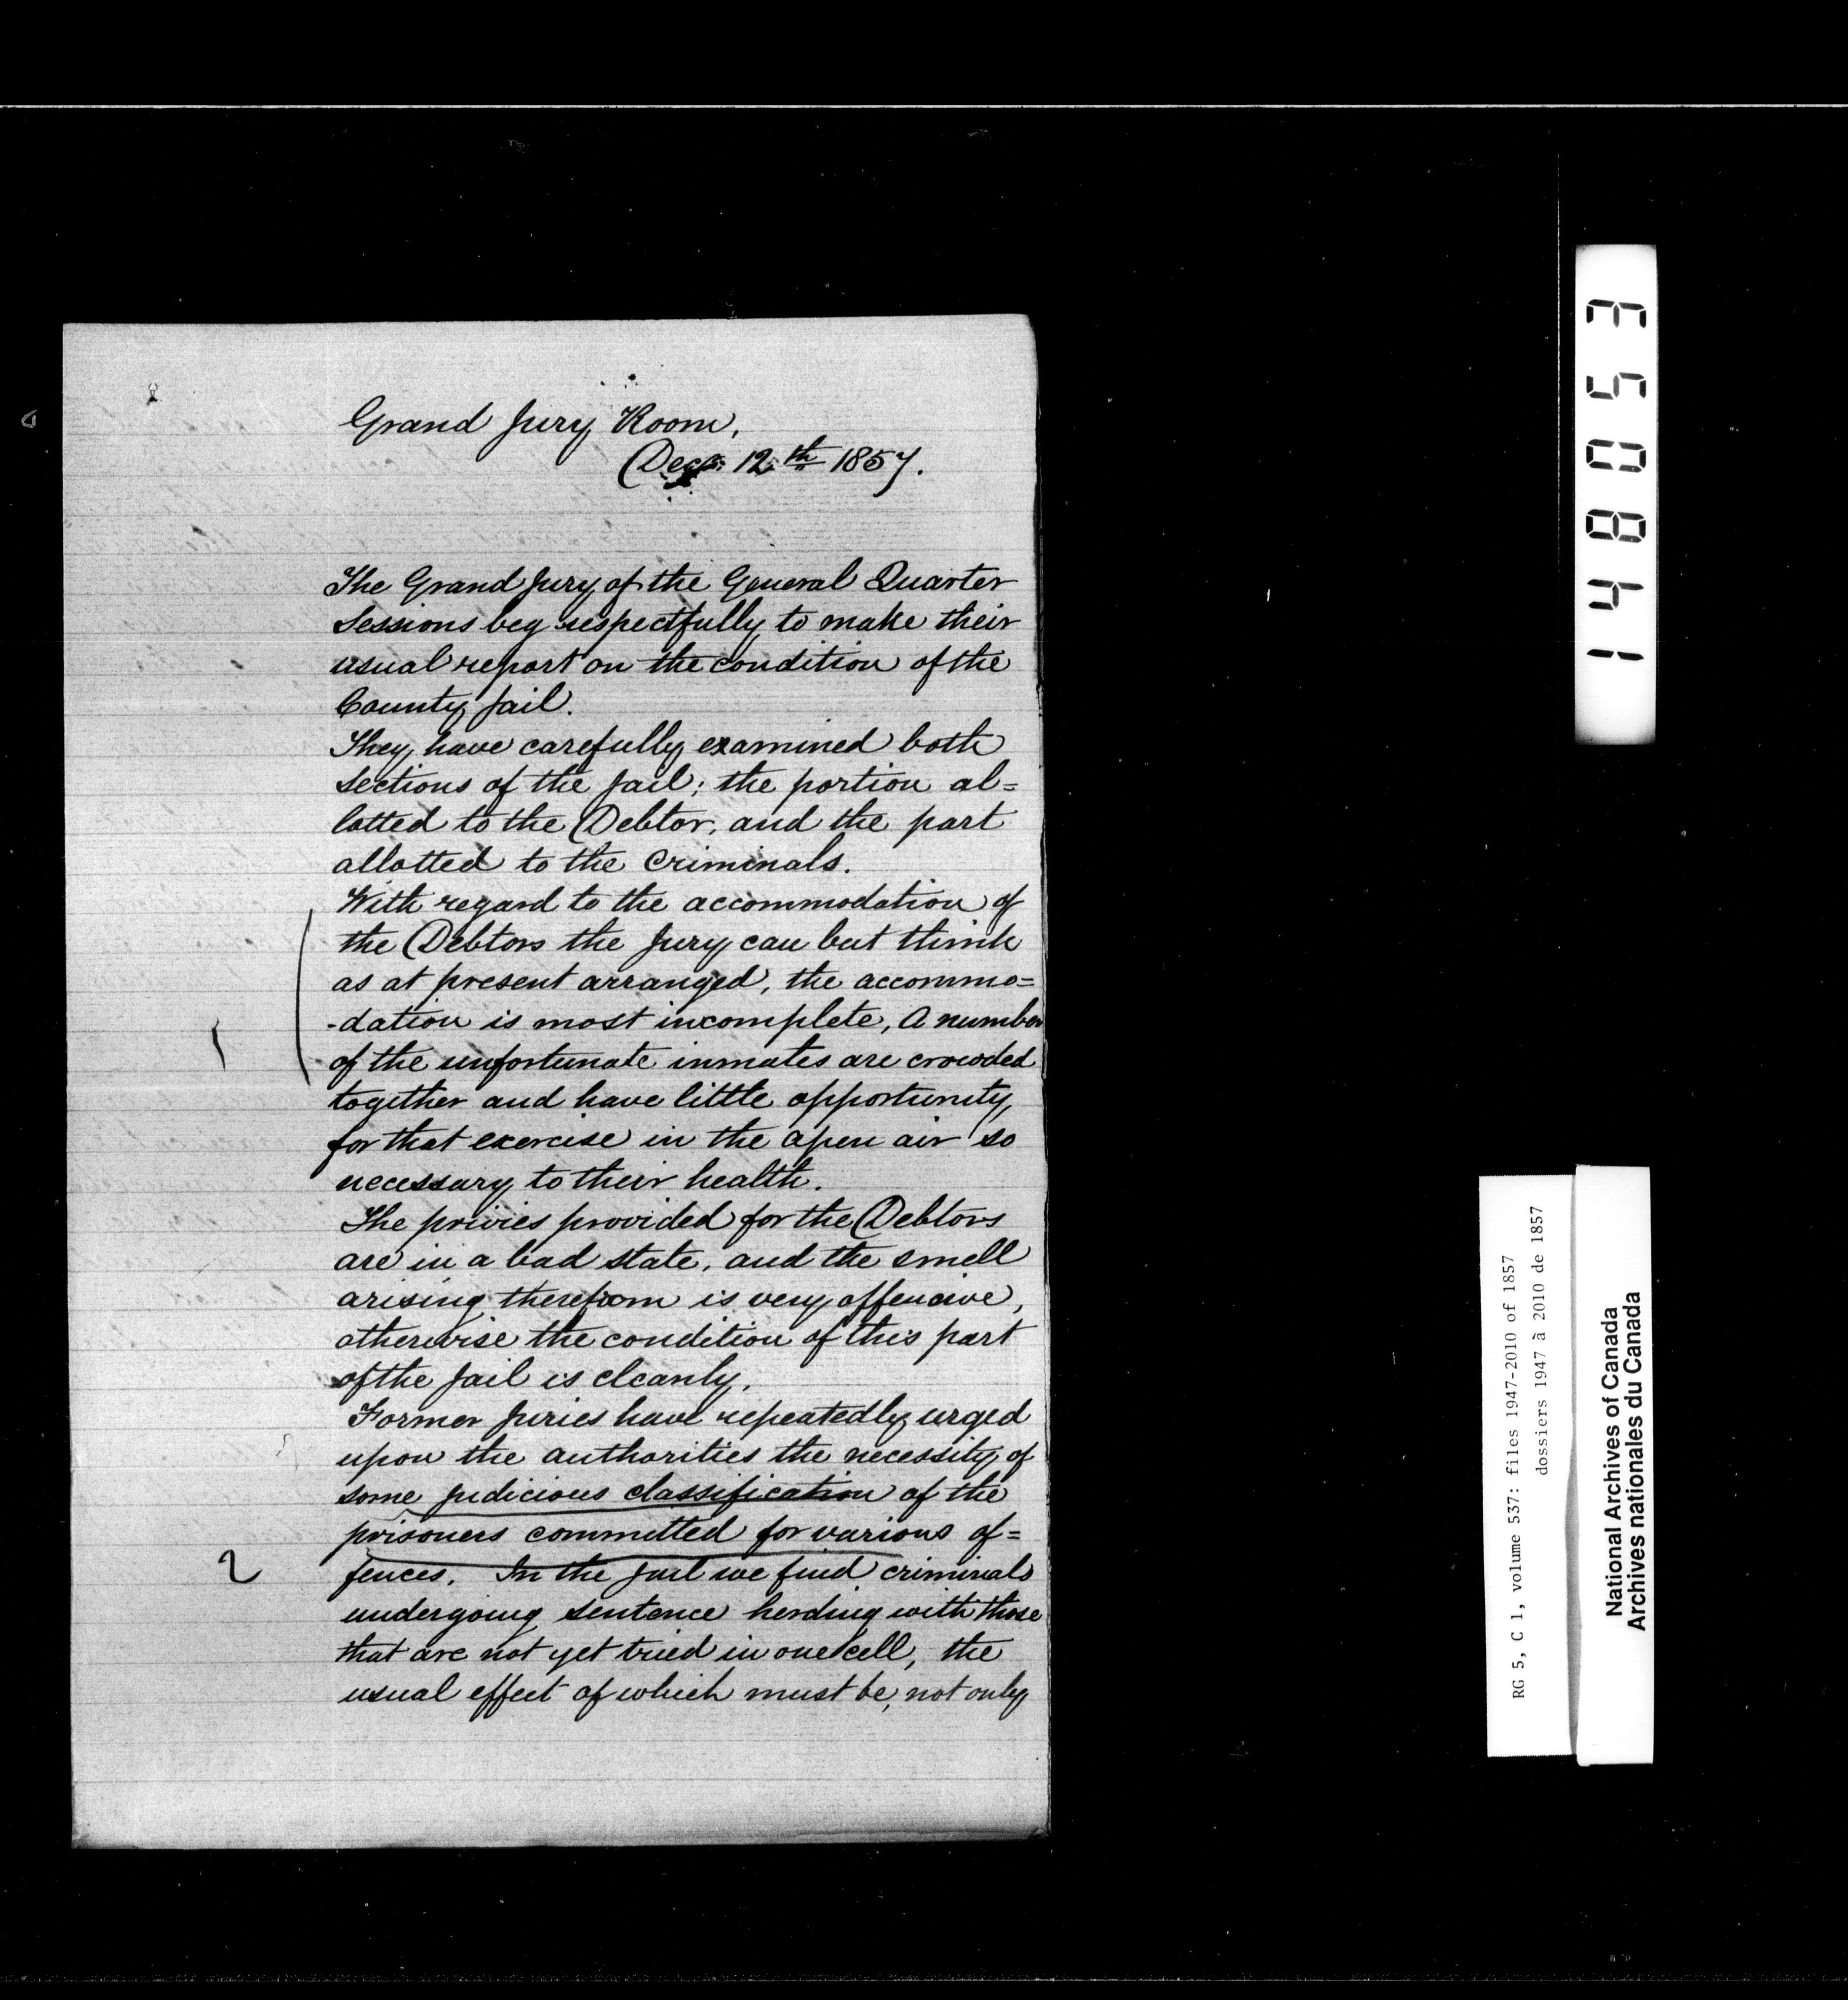 Grand Jury Room,
Decr. 12th 1857.
The Grand Jury of the General Quarter
Sessions beg respectfully to make their
usual report on the condition of the
County Jail.
They have carefully examined both
sections of the Jail; the portion al=
lotted to the Debtor, and the part
allotted to the Criminals.
With regard to the accommodation of
the Debtors the Jury can but think
as at present arranged, the accommo=
-dation is most incomplete, A number
1
of the unfortunate inmates are crowded
together and have little opportunity
for that exercise in the open air so
necessary to their health.
The privies provided for the Debtors
are in a bad state, and the smell
arising therefrom is very offencive,
otherwise the condition of this part
of the Jail is cleanly.
Former Juries have repeatedly urged
upon the authorities the necessity of
some judicious classification of the
prisoners committed for various of=
2
fences. In the Jail we find criminals
undergoing sentence herding with those
that are not yet tried in one cell, the
usual effect of which must be, not only
148053
RG 5, C 1, volume 537: files 1947-2010 of 1857
dossiers 1947 à 2010 de 1857
National Archives of Canada
Archives nationales du Canada